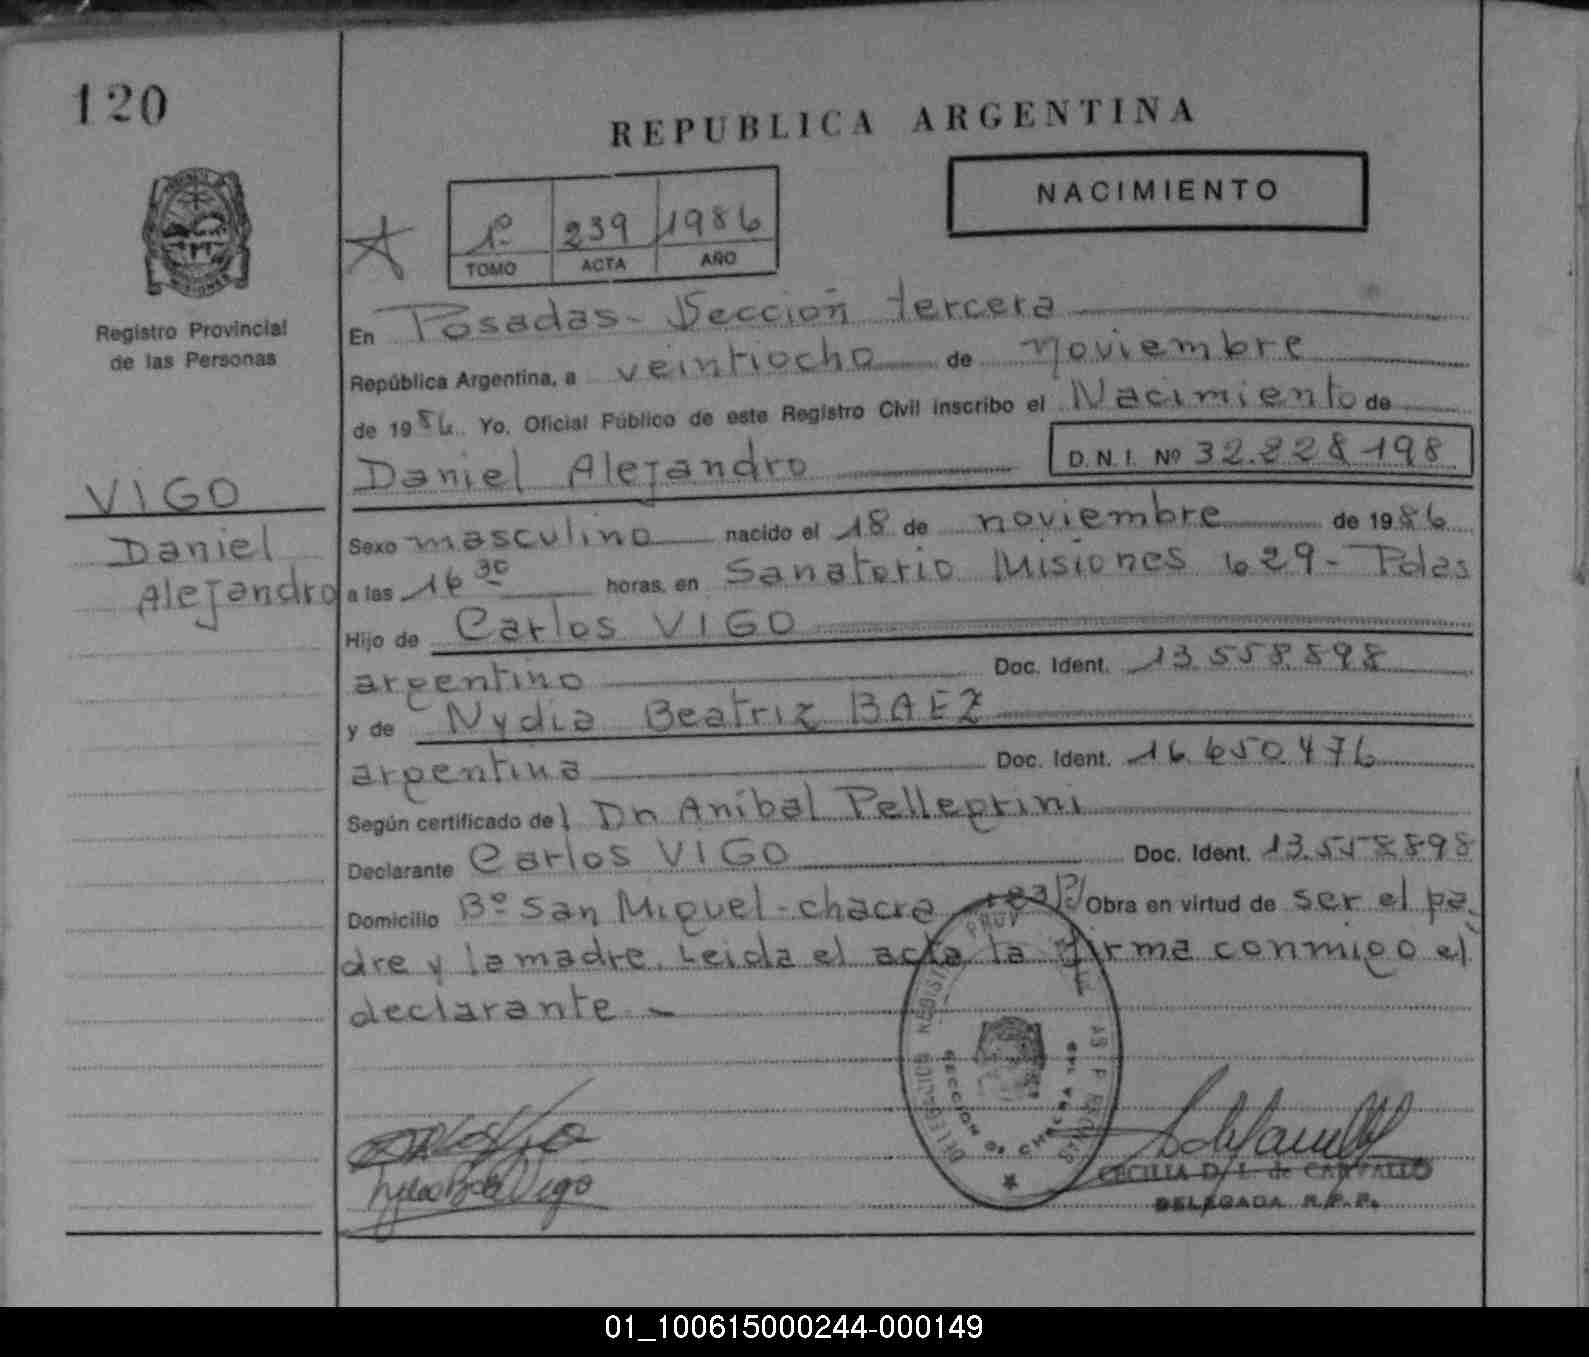 120
REPUBLICA ARGENTINA
NACIMIENTO
1º 239 1986
TOMO ACTA AÑO
Registro Provincial
de las Personas
En Posadas - Sección tercera
República Argentina, a veintiocho de noviembre
de 1986. Yo, Oficial Público de este Registro Civil inscribo el Nacimiento de
Daniel Alejandro D.N.I. Nº 32.828.198
VIGO
Daniel
Alejandro
Sexo masculino nacido el 18 de noviembre de 1986
a las 16 30 horas, en Sanatorio Misiones 629 - Pdas
Hijo de Carlos VIGO
argentino Doc. Ident. 13.558.898
y de Nydia Beatriz BAEZ
argentina Doc. Ident. 16.650.476
Según certificado del Dn Aníbal Pellegrini
Declarante Carlos VIGO Doc. Ident. 13.558.898
Domicilio Bº San Miguel - chacra Obra en virtud de ser el pa
dre y la madre. Leida el acta la firma conmigo el
declarante. -
SECCION DE CHACRA
CECILIA D. L. de CARVALLO
DELEGADA R.P.P.
01_100615000244-000149